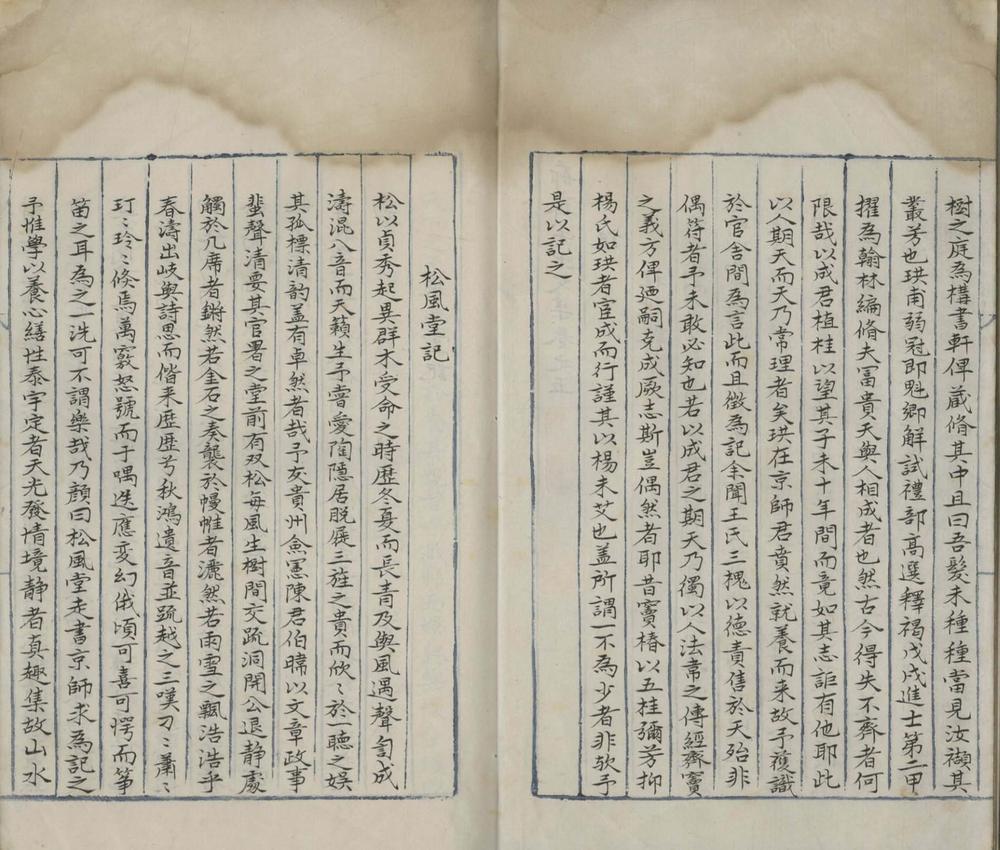 樹之庭為構書軒俾藏脩其中且曰吾髮未種種當見汝擷其
叢芳也珙甫弱冠即魁鄉解試禮部髙選釋褐戊戌進士第二甲
擢為翰林編脩夫冨貴天與人相成者也然古今得失不齊者何
限哉以成君植桂以望其子未十年間而竟如其志詎有他耶此
以人期天而天乃常理者矣珙在京師君賁然就養而来故予獲識
於官舍間為言此而且徴為記余聞王氏三槐以德責售於天殆非
偶符者予未敢必知也若以成君之期天乃獨以人法常之傳經齊竇
之義方俾廼嗣克成厥志斯豈偶然者耶昔竇椿以五桂彌芳抑
楊氏如珙者宦成而行謹其以楊未艾也盖所謂一不為少者非欤予
是以記之
松風堂記
松以貞秀起異群木受命之時歴冬夏而長青及與風遇聲匐成
濤混八音而天籟生予甞愛陶隠居脱屣三旌之貴而欣〻於一聽之娱
其孤標清韵盖有卓然者哉予友貴州僉憲陳君伯暐以文章政事
蜚聲清要其官署之堂前有双松每風生樹間交疏洞開公退静處
觸於几席者鏘然若金石之奏襲於幔帷者灑然若雨雪之飄浩浩乎
春濤出岐與詩思而偕来歴歴兮秋鴻遺音並踈越之三嘆刁〻蕭〻
玎〻玲〻倐焉萬竅怒號而于喁迭應变幻俄頃可喜可愕而筝
笛之耳為之一洗可不謂樂哉乃顔曰松風堂走書京師求為記之
予惟學以養心繕性泰宇定者天光發情境静者真趣集故山水